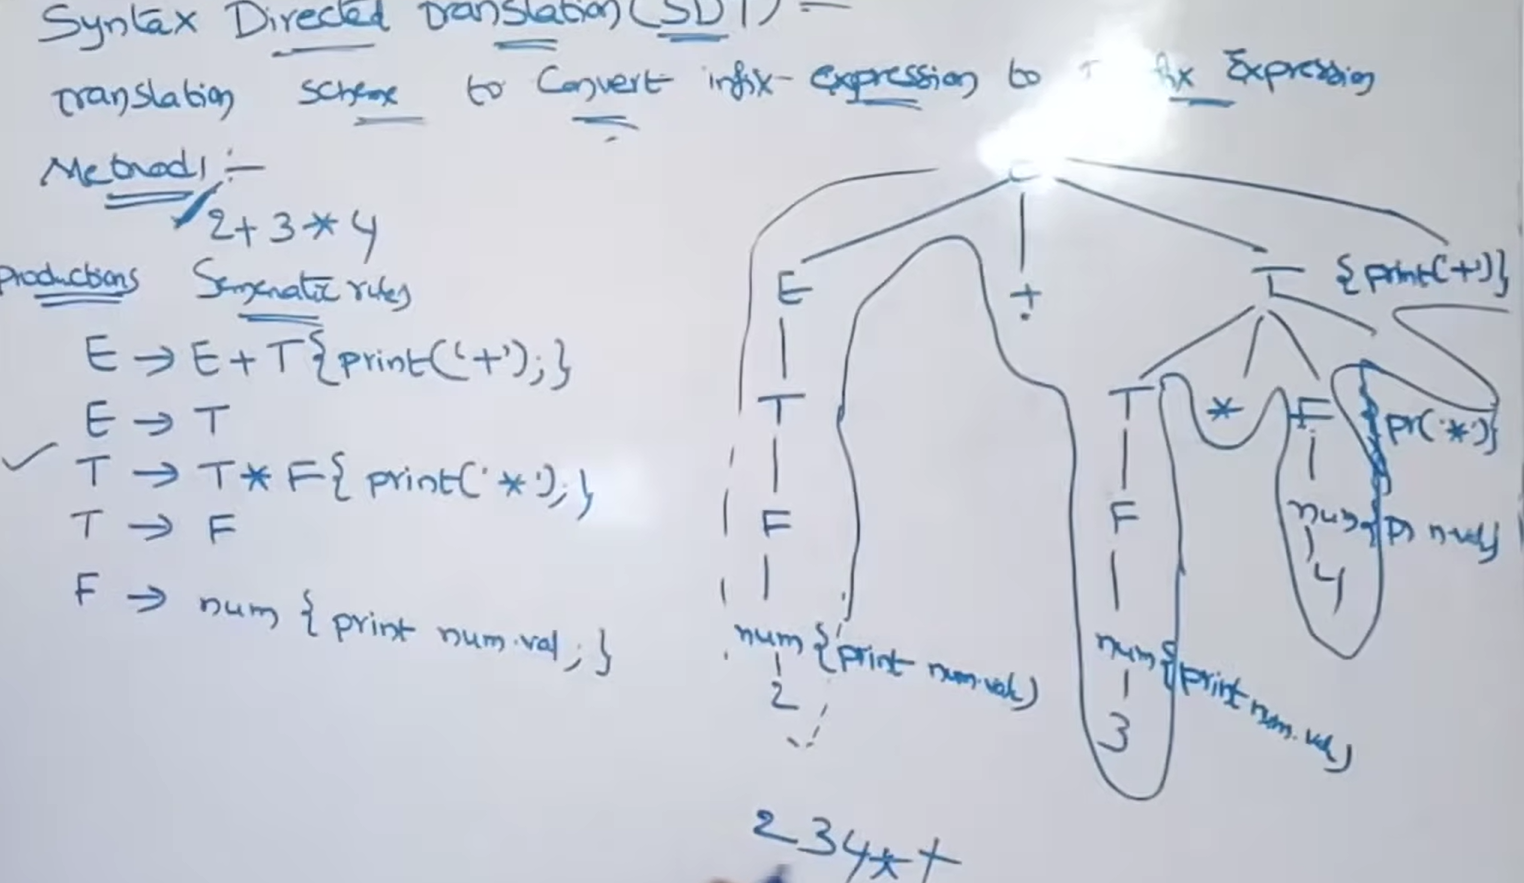 Syntax Directed Translation (SDT) :-
Translation scheme to Convert infix expression to fix Expression
Method 1 :-
2+3*4
Productions Semenatic rules
E → E + T {print('+');}
E → T
T → T * F { print('*'); }
T → F
F → num { print num.val ; }
E + T {print('+')}
T T * F {pr('*')}
F F num {p n.val}
4
num {print num.val)
2
num {print num.val)
3
234*+